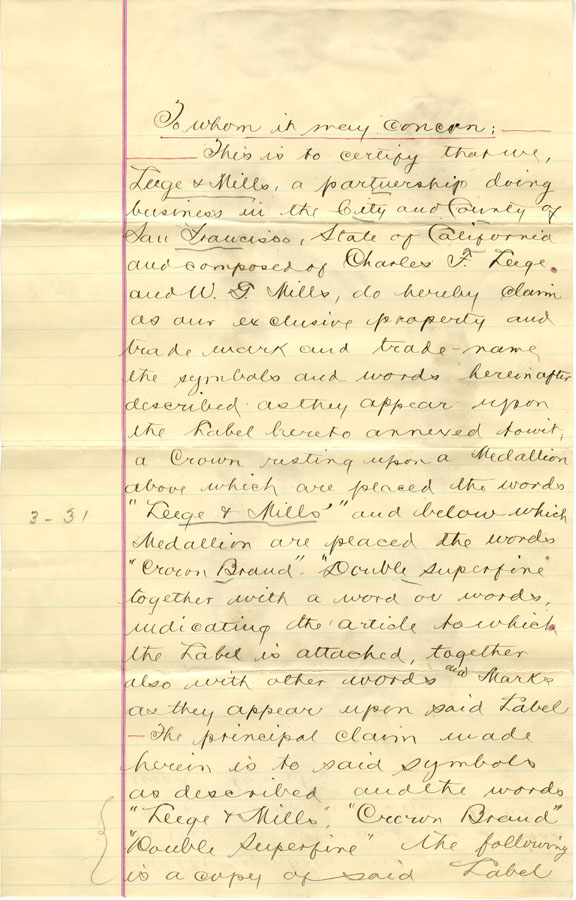 To whom it may concern;
This is to certify that we,
Leege & Mills, a partnership doing
business in the City and County of
San Francisco, State of California
and composed of Charles F. Leege
and W. G. Mills, do hereby claim
as our exclusive property and
trade mark and trade-name
the symbols and words hereinafter
described as they appear upon
the Label hereto annexed towit;
a Crown resting upon a Medallion
above which are placed the words
"Leege & Mills" and below which
3-31
Medallion are placed the words
"Crown Brand". "Double Superfine"
together with a word or words,
indicating the article to which
the Label is attached, together
also with other words and Marks
as they appear upon said Label
- The principal claim made
herein is to said symbols
as described and the words
"Leege & Mills". "Crown Brand"
"Double Superfine" the following
is a copy of said Label